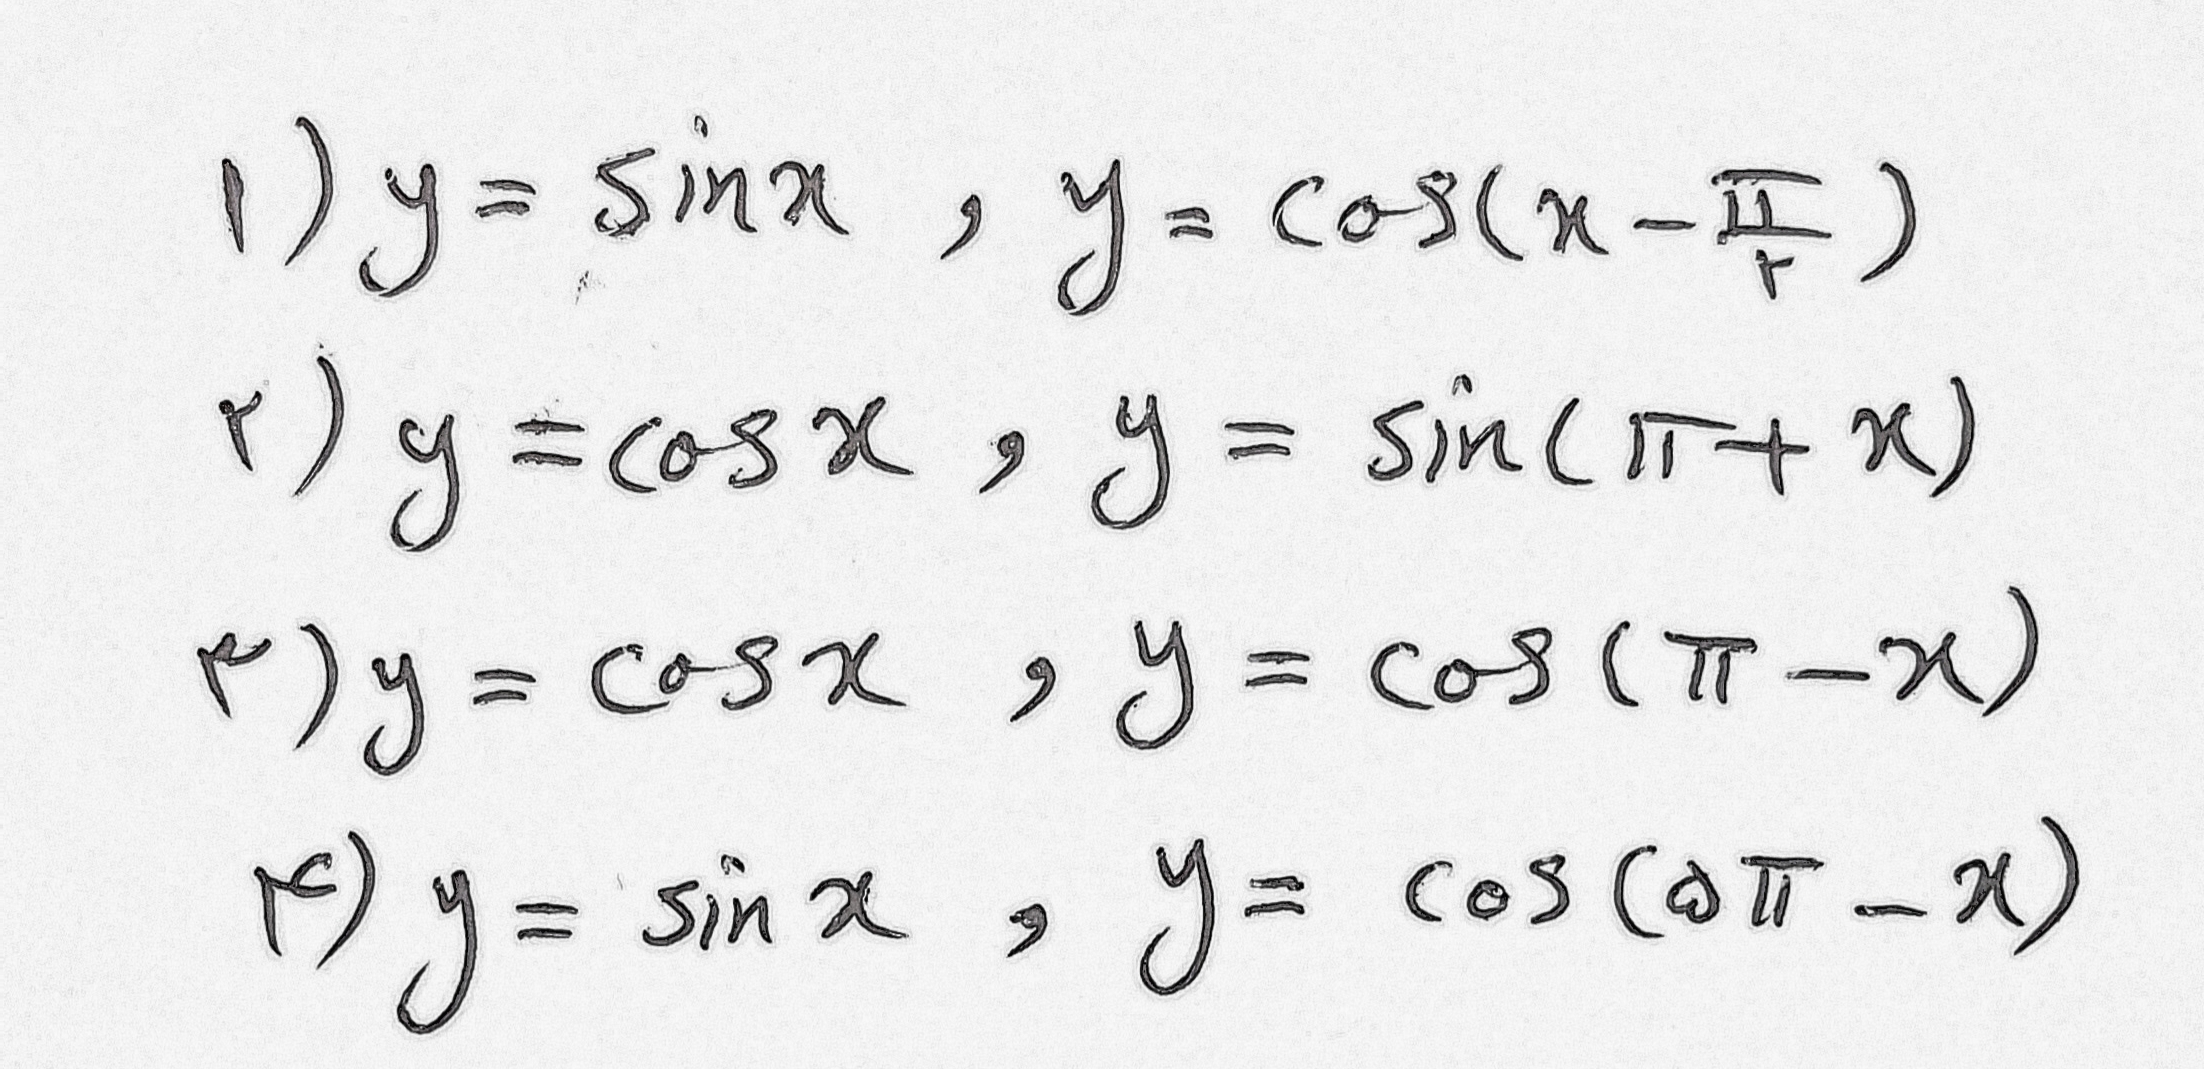 ۱) y = sinx , y = cos(x - π/۲)
۲) y = cosx , y = sin(π + x)
۳) y = cosx , y = cos(π - x)
۴) y = sinx , y = cos(۵π - x)